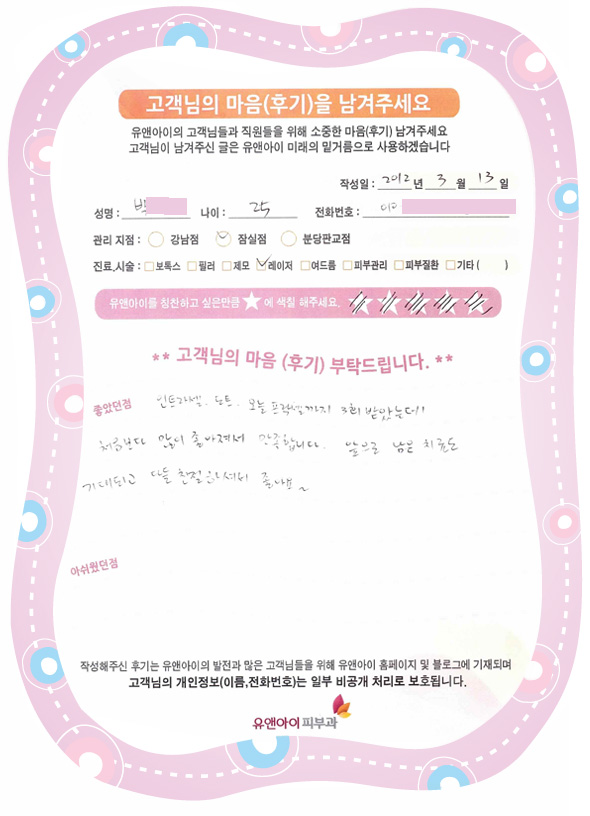 고객님의 마음(후기)을 남겨주세요
유앤아이의 고객님들과 직원들을 위해 소중한 마음(후기) 남겨주세요
고객님이 남겨주신 글은 유앤아이 미래의 밑거름으로 사용하겠습니다
작성일 : 2012 년 3 월 13 일
성명 : 박 나이 : 25 전화번호 :
관리 지점 : 강남점 잠실점 분당판교점
진료,시술 : 보톡스 필러 제모 레이저 여드름 피부관리 피부질환 기타 ( )
유앤아이를 칭찬하고 싶은만큼 ★ 에 색칠 해주세요.
** 고객님의 마음 (후기) 부탁드립니다. **
좋았던점 인트라셀. 도트. 오늘 프락셀까지 3회 받았는데
처음보다 많이 좋아져서 만족합니다. 앞으로 남은 치료도
기대되고 다들 친절하셔서 좋네요
아쉬웠던점
작성해주신 후기는 유앤아이의 발전과 많은 고객님들을 위해 유앤아이 홈페이지 및 블로그에 기재되며
고객님의 개인정보(이름,전화번호)는 일부 비공개 처리로 보호됩니다.
유앤아이피부과